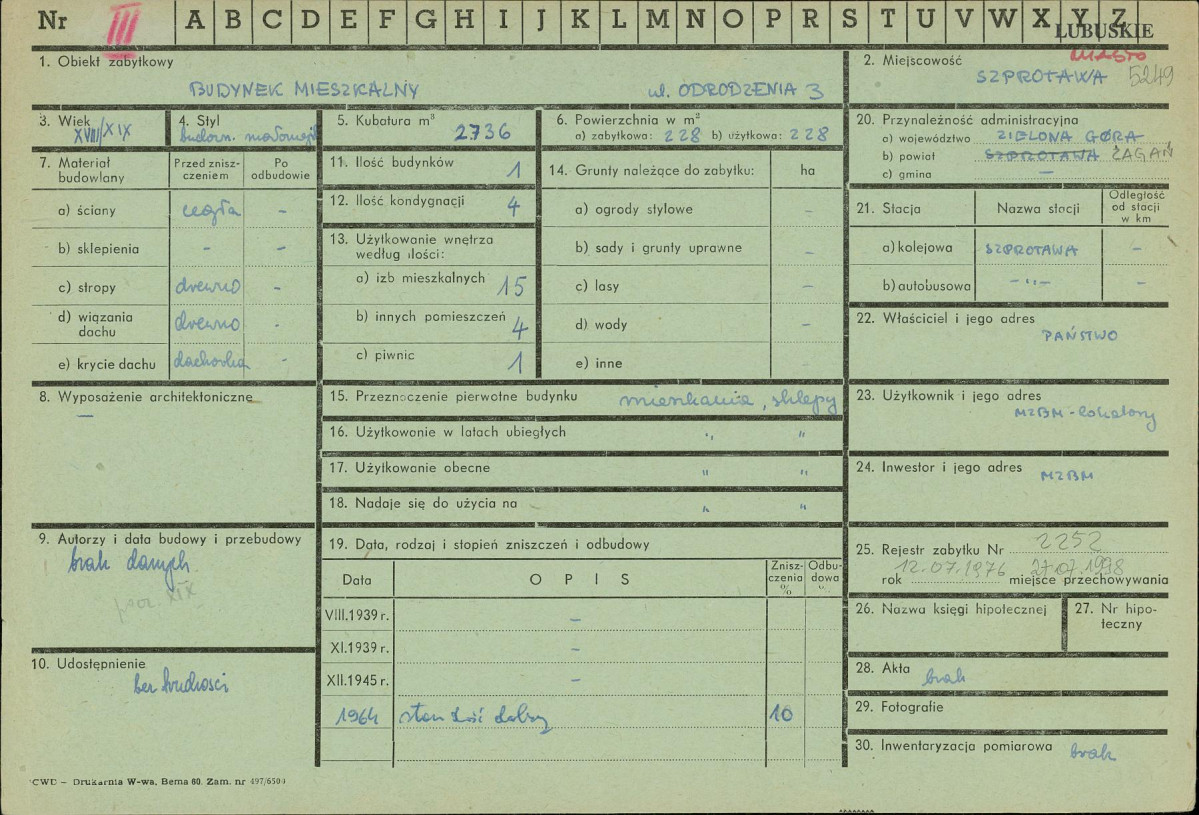 Nr III A B C D E F G H I J K L M N O P R S T U V W X Y Z
LUBUSKIE
MIASTO
1. Obiekt zabytkowy
BUDYNEK MIESZKALNY ul. ODRODZENIA 3
2. Miejscowość
SZPROTAWA 5249
3. Wiek
XVIII/XIX
4. Styl
budown. małomiejsk
5. Kubatura m³ 2736
6. Powierzchnia w m²
a) zabytkowa: 228 b) użytkowa: 228
7. Materiał budowlany
Przed zniszczeniem
Po odbudowie
a) ściany cegła -
b) sklepienia - -
c) stropy drewno -
d) wiązania dachu drewno -
e) krycie dachu dachówka -
8. Wyposażenie architektoniczne
—
9. Autorzy i data budowy i przebudowy
brak danych
pocz. XIX
10. Udostępnienie
bez trudności
11. Ilość budynków 1
12. Ilość kondygnacji 4
13. Użytkowanie wnętrza według ilości:
a) izb mieszkalnych 15
b) innych pomieszczeń 4
c) piwnic 1
14. Grunty należące do zabytku: ha
a) ogrody stylowe -
b) sady i grunty uprawne -
c) lasy -
d) wody -
e) inne
15. Przeznaczenie pierwotne budynku mieszkania, sklepy
16. Użytkowanie w latach ubiegłych " "
17. Użytkowanie obecne " "
18. Nadaje się do użycia na " "
19. Data, rodzaj i stopień zniszczeń i odbudowy
Data OPIS Zniszczenia % Odbudowa %
VIII.1939 r. —
XI.1939 r. —
XII.1945 r. —
1964 stan dość dobry 10
20. Przynależność administracyjna
a) województwo ZIELONA GÓRA
b) powiat SZPROTAWA ŻAGAŃ
c) gmina —
21. Stacja Nazwa stacji Odległość od stacji w km
a) kolejowa SZPROTAWA -
b) autobusowa -"- -
22. Właściciel i jego adres
PAŃSTWO
23. Użytkownik i jego adres
MZBM - lokatorzy
24. Inwestor i jego adres
MZBM
25. Rejestr zabytku Nr 2252
12.07.1976 27.07.1998
rok miejsce przechowywania
26. Nazwa księgi hipotecznej
27. Nr hipoteczny
28. Akta brak
29. Fotografie
30. Inwentaryzacja pomiarowa brak
CWD — Drukarnia W-wa, Bema 60. Zam. nr 497/6500